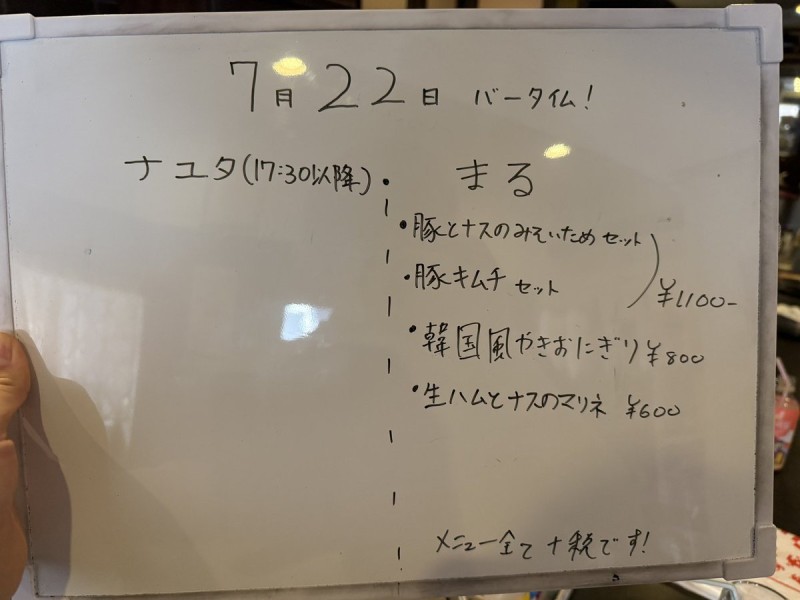 7月22日 バータイム!
ナユタ(17:30以降)・
まる
・豚とナスのみそいためセット
・豚キムチセット
¥1100-
・韓国風やきおにぎり ¥800
・生ハムとナスのマリネ ¥600
メニュー全て+税です!